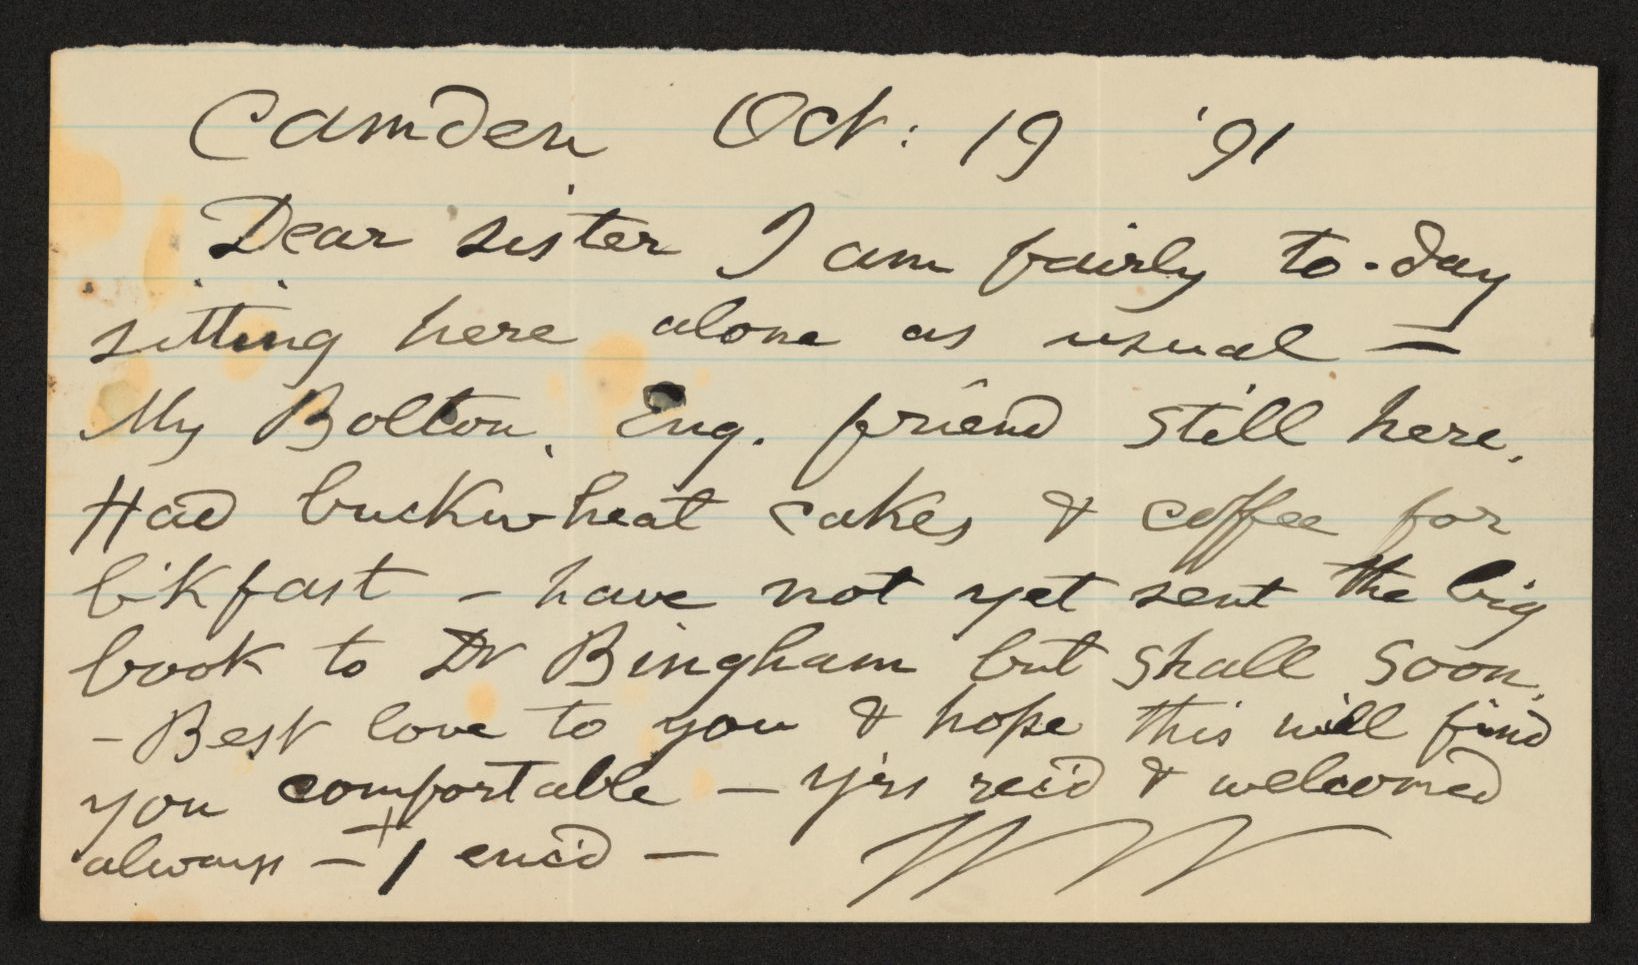 Camden Oct: 19 '91
Dear sister I am fairly to-day
sitting here alone as usual —
My Bolton, Eng. friend still here,
Had buckwheat cakes & coffee for
b'kfast – have not yet sent the big
book to Dr Bingham but shall soon,
– Best love to you & hope this will find
you comfortable – y'rs rec'd & welcomed
always – + 1 enc'd – W W